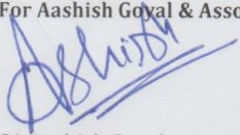 For Aashish Goyal & Asso
Ashish